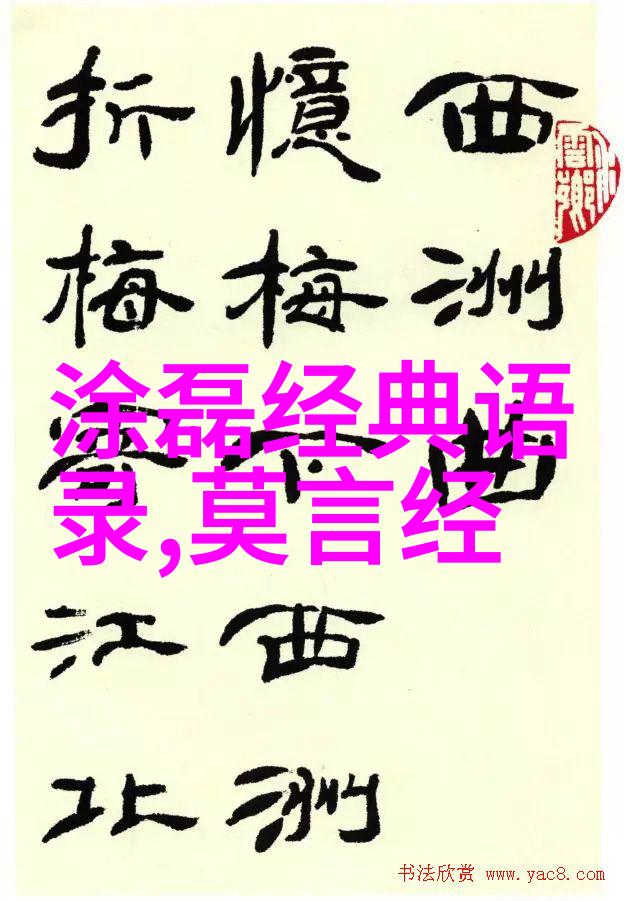 西洲曲
憶梅下西洲
折梅寄江北
涂磊经典语
录,莫言经
书法欣赏 www.yac8.com